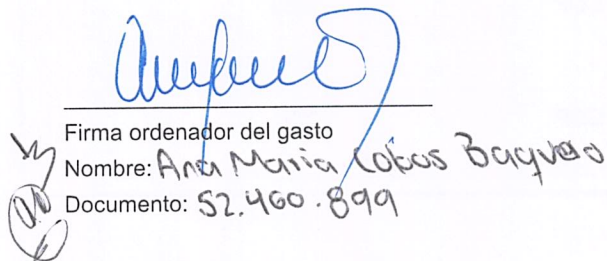 Firma ordenador del gasto
Nombre: Ana Maria Cobos Baquero
Documento: 52.460.899